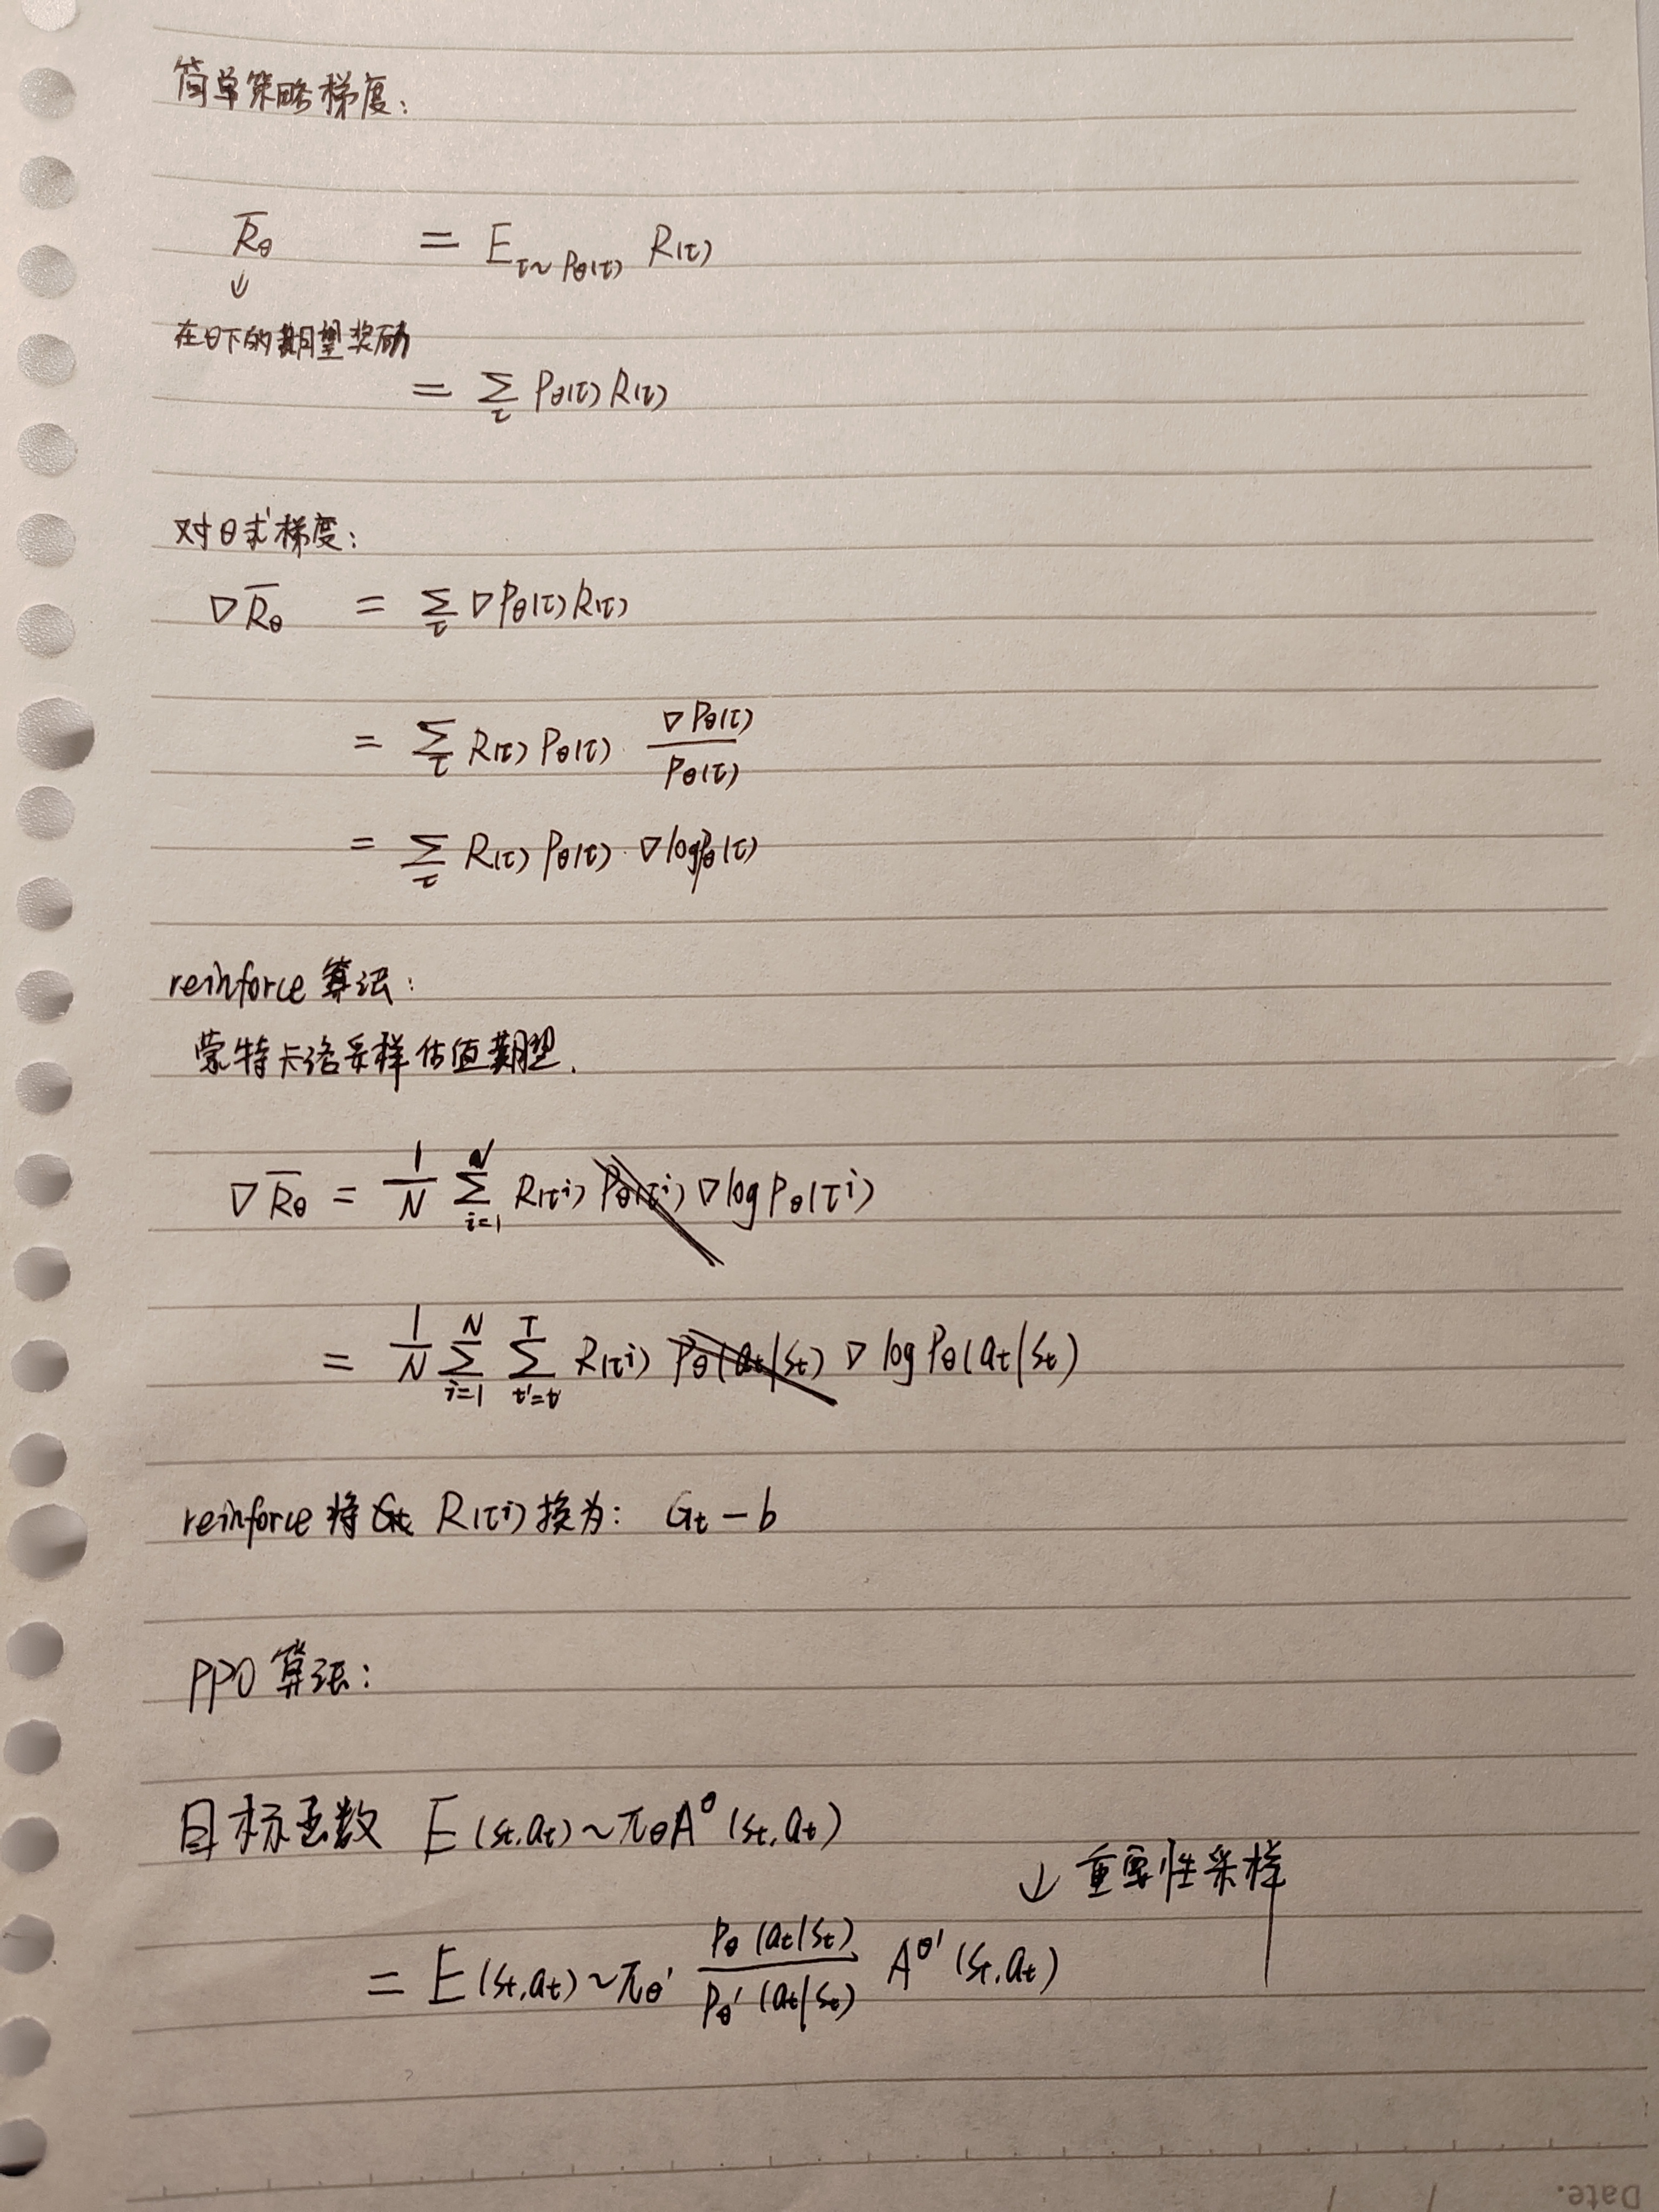 简单策略梯度:
R̅θ = E τ~Pθ(τ) R(τ)
↓
在θ下的期望奖励
= Σ τ Pθ(τ) R(τ)
对θ求梯度:
∇R̅θ = Σ τ ∇Pθ(τ) R(τ)
= Σ τ R(τ) Pθ(τ) ∇Pθ(τ) / Pθ(τ)
= Σ τ R(τ) Pθ(τ) · ∇log Pθ(τ)
reinforce 算法:
蒙特卡洛采样估值期望.
∇R̅θ = 1/N Σ i=1 N R(τi) Pθ(τi) ∇log Pθ(τi)
= 1/N Σ i=1 N Σ t'=t T R(τi) Pθ(at|st) ∇ log Pθ(at|st)
reinforce 将 Gt R(τi) 换为: Gt - b
PPO 算法:
目标函数 E (st,at)~πθ Aθ (st,at)
↓ 重要性采样
= E (st,at)~πθ' Pθ (at|st) / Pθ' (at|st) Aθ' (st,at)
Date. / /